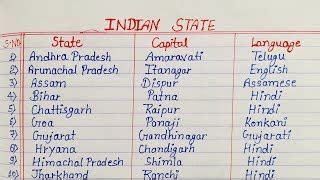 INDIAN STATE
S.No. State Capital Language
1) Andhra Pradesh Amaravati Telugu
2) Arunachal Pradesh Itanagar English
3) Assam Dispur Assamese
4) Bihar Patna Hindi
5) Chattisgarh Raipur Hindi
6) Goa Panaji Konkani
7) Gujarat Gandhinagar Gujarati
8) Hryana Chandigarh Hindi
9) Himachal Pradesh Shimla Hindi
10) Jharkhand Ranchi Hindi